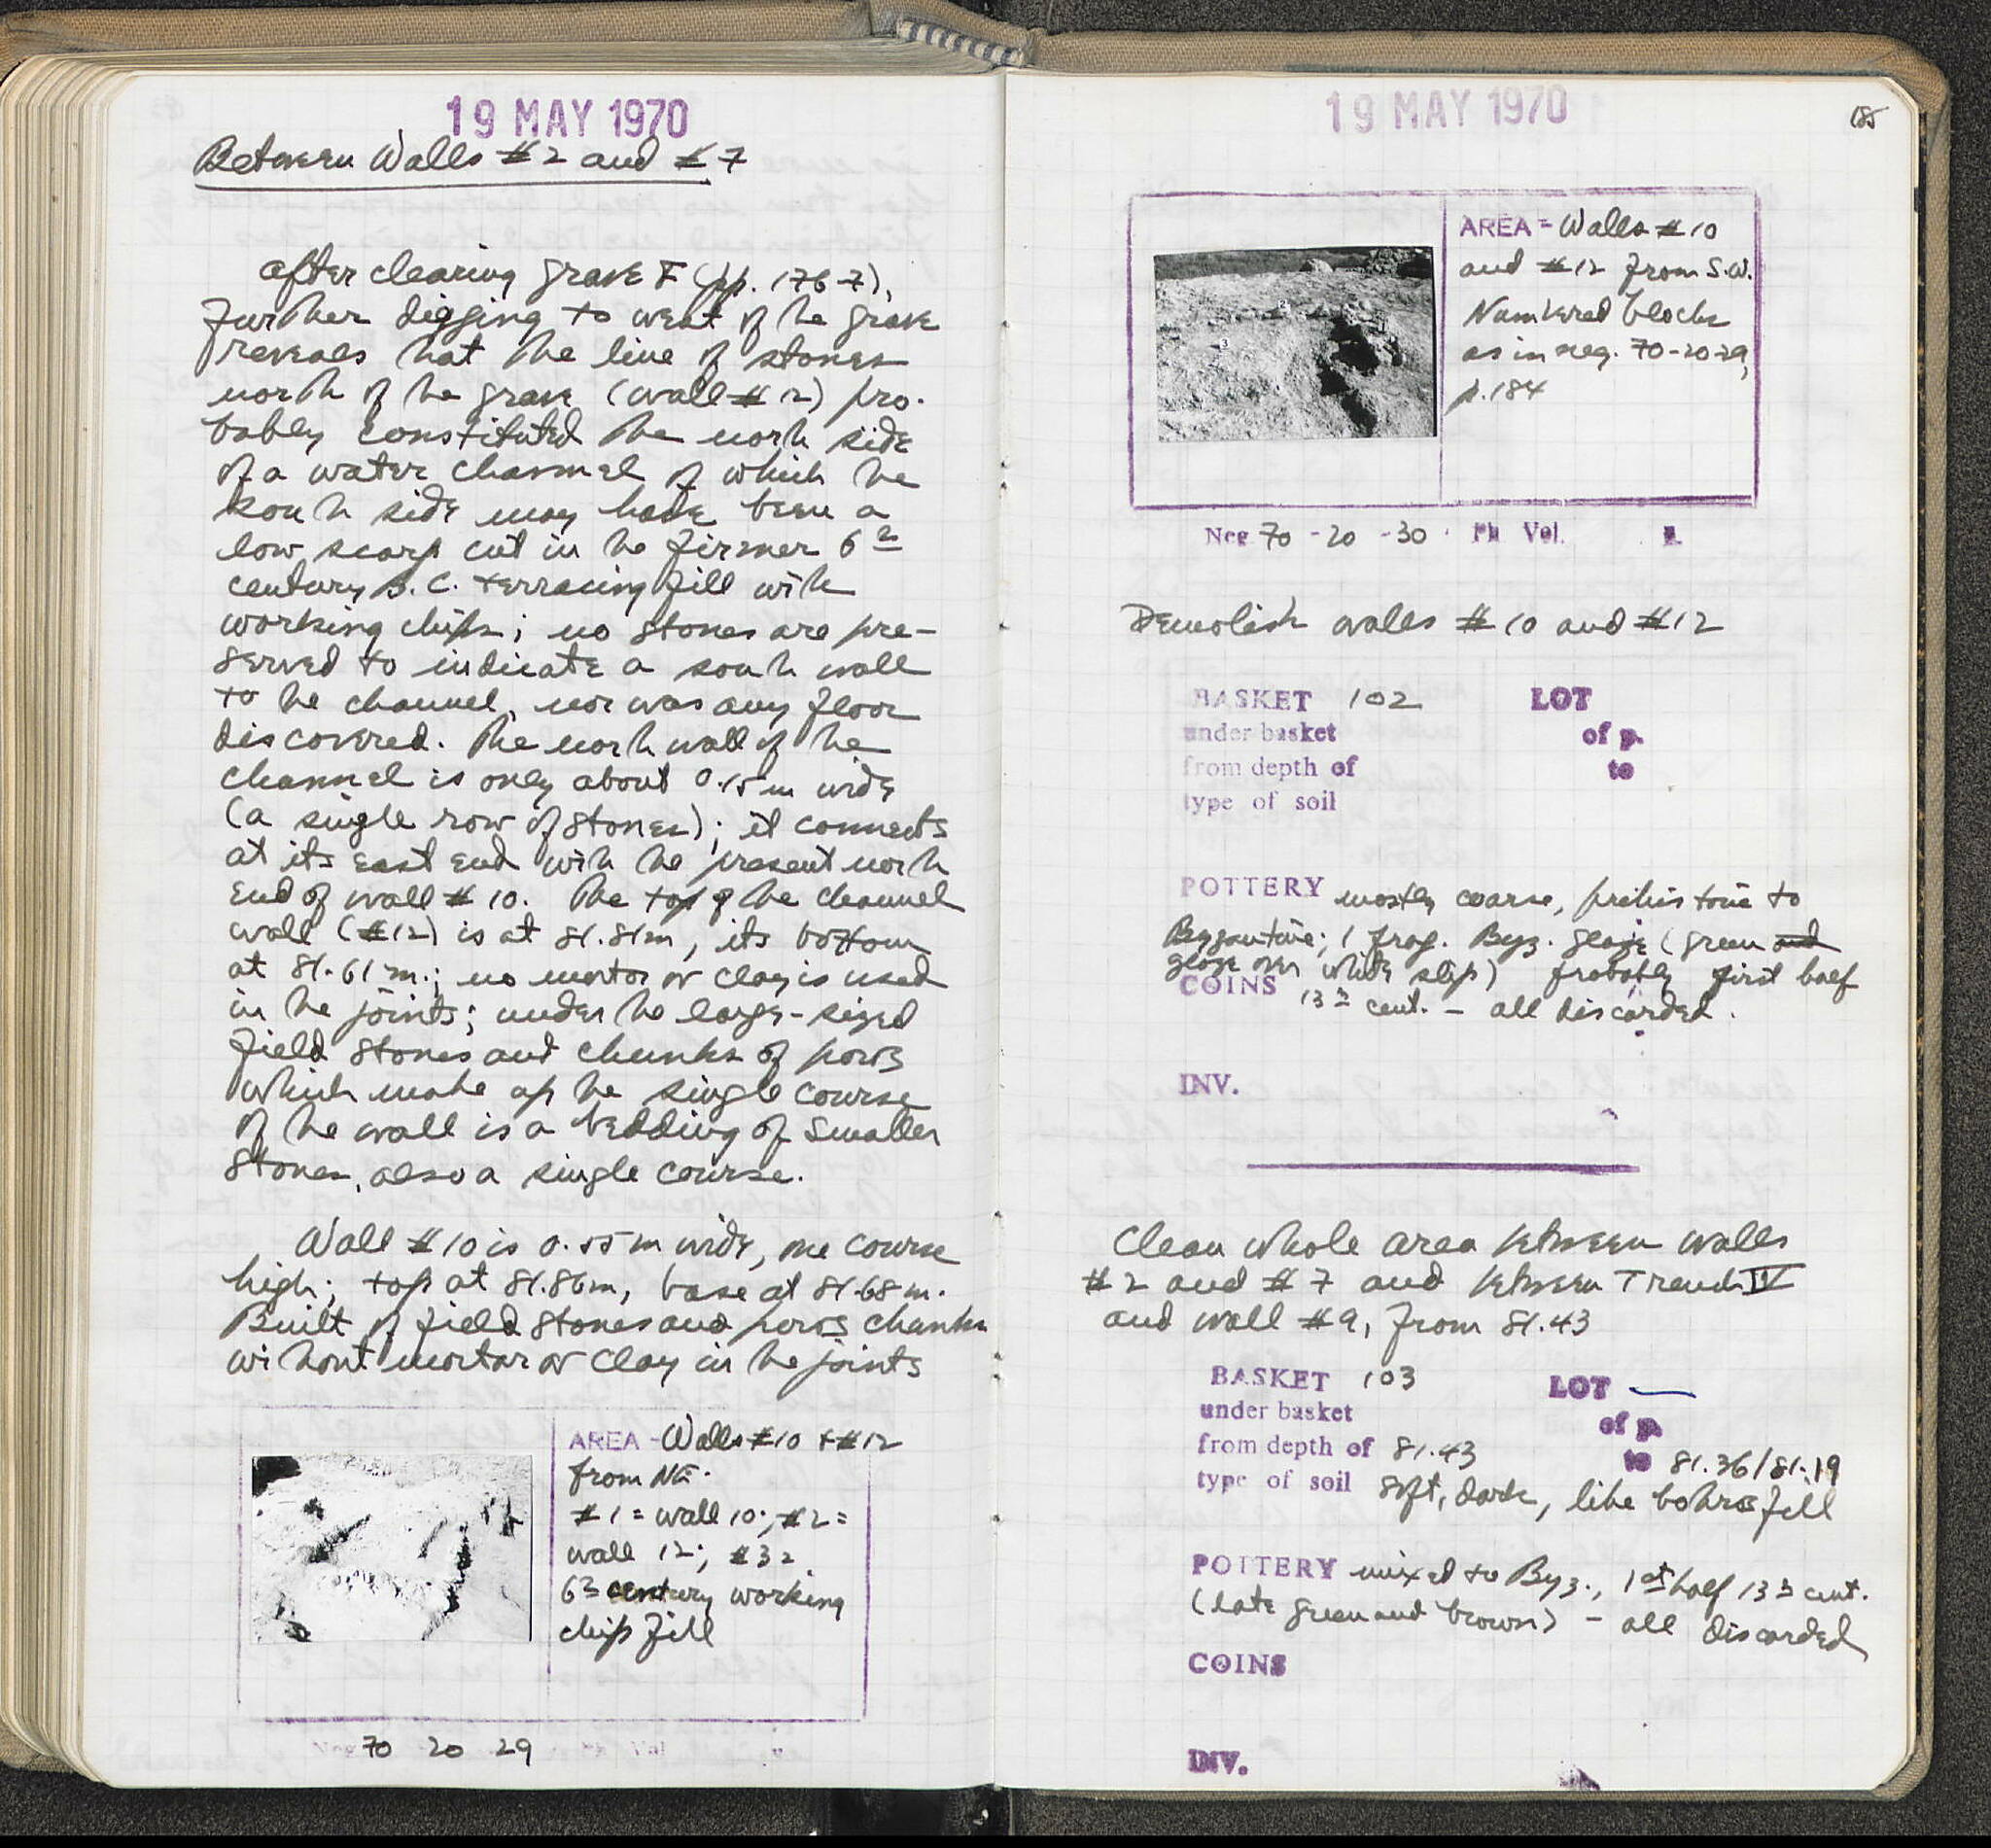 19 MAY 1970
Between Walls #2 and #7
After clearing grave F (pp. 176-7),
further digging to west of the grave
reveals that the line of stones
north of the grave (wall #12) pro-
bably constituted the north side
of a water channel of which the
south side may have been a
low scarp cut in the firmer 6th
century B.C. terracing fill with
working chips; no stones are pre-
served to indicate a south wall
to the channel, nor was any floor
discovered. The north wall of the
channel is only about 0.15m wide
(a single row of stones); it connects
at its east end with the present north
end of wall #10. The top of the channel
wall (#12) is at 81.81m, its bottom
at 81.61m.; no mortar or clay is used
in the joints; under the large-sized
field stones and chunks of poros
which make up the single course
of the wall is a bedding of smaller
stones, also a single course.
Wall #10 is 0.55m wide, one course
high; top at 81.86m, base at 81.68m.
Built of field stones and poros chunks
without mortar or clay in the joints
AREA - Walls #10 + #12
from NE.
#1 = wall 10; #2 =
wall 12; #3 =
6th century working
chip fill
Neg 70 20 29 Ph Vol
19 MAY 1970
185
AREA - Walls #10
and #12 from S.W.
Numbered blocks
as in neg. 70-20-29,
p. 184
2
3
Neg 70 - 20 - 30 Ph Vol. p.
Demolish walls #10 and #12
BASKET 102 LOT
under basket of p.
from depth of to
type of soil
POTTERY mostly coarse, prehistoric to
Byzantine; 1 frag. Byz. glaze (green and
glaze over white slip) probably first half
COINS 13th cent. - all discarded.
INV.
Clean whole area between walls
#2 and #7 and between Trench IV
and wall #9, from 81.43
BASKET 103 LOT —
under basket of p.
from depth of 81.43 to 81.36/81.19
type of soil soft, dark, like bothros fill
POTTERY mixed to Byz., 1st half 13th cent.
(late green and brown) - all discarded
COINS
INV.